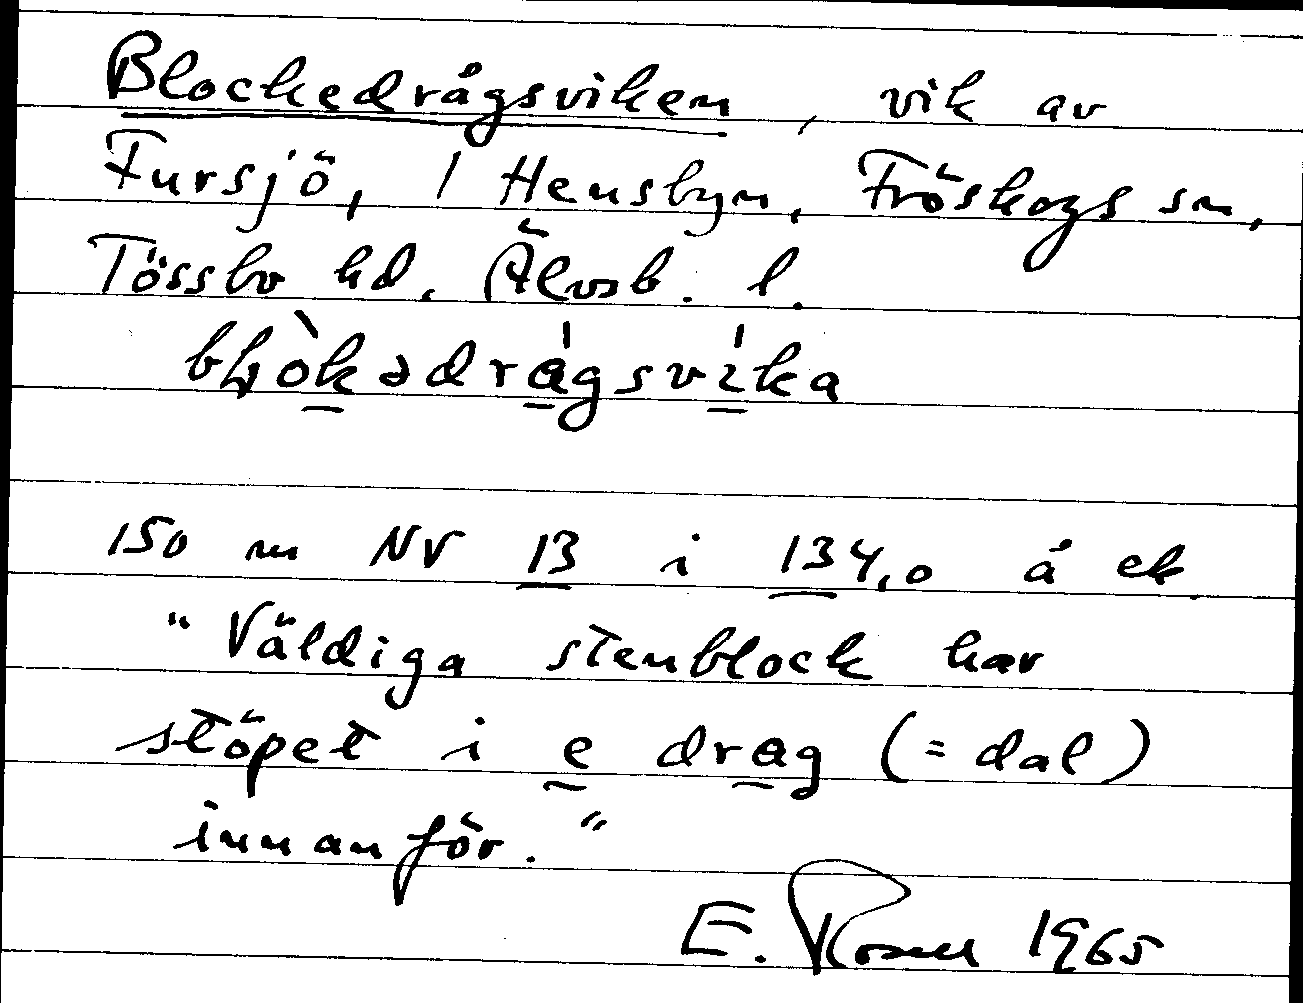 Blockedrågsviken, vik av
Fursjö, 1 Hensbyn, Fröskogs sn,
Tössbo hd. Älvsb. l.
bḷòkədrágsvíka
150 m NV 13 i 134,0 å ek.
"Väldiga stenblock har
stöpet i e drag (= dal)
innanför."
E. Rosell 1965